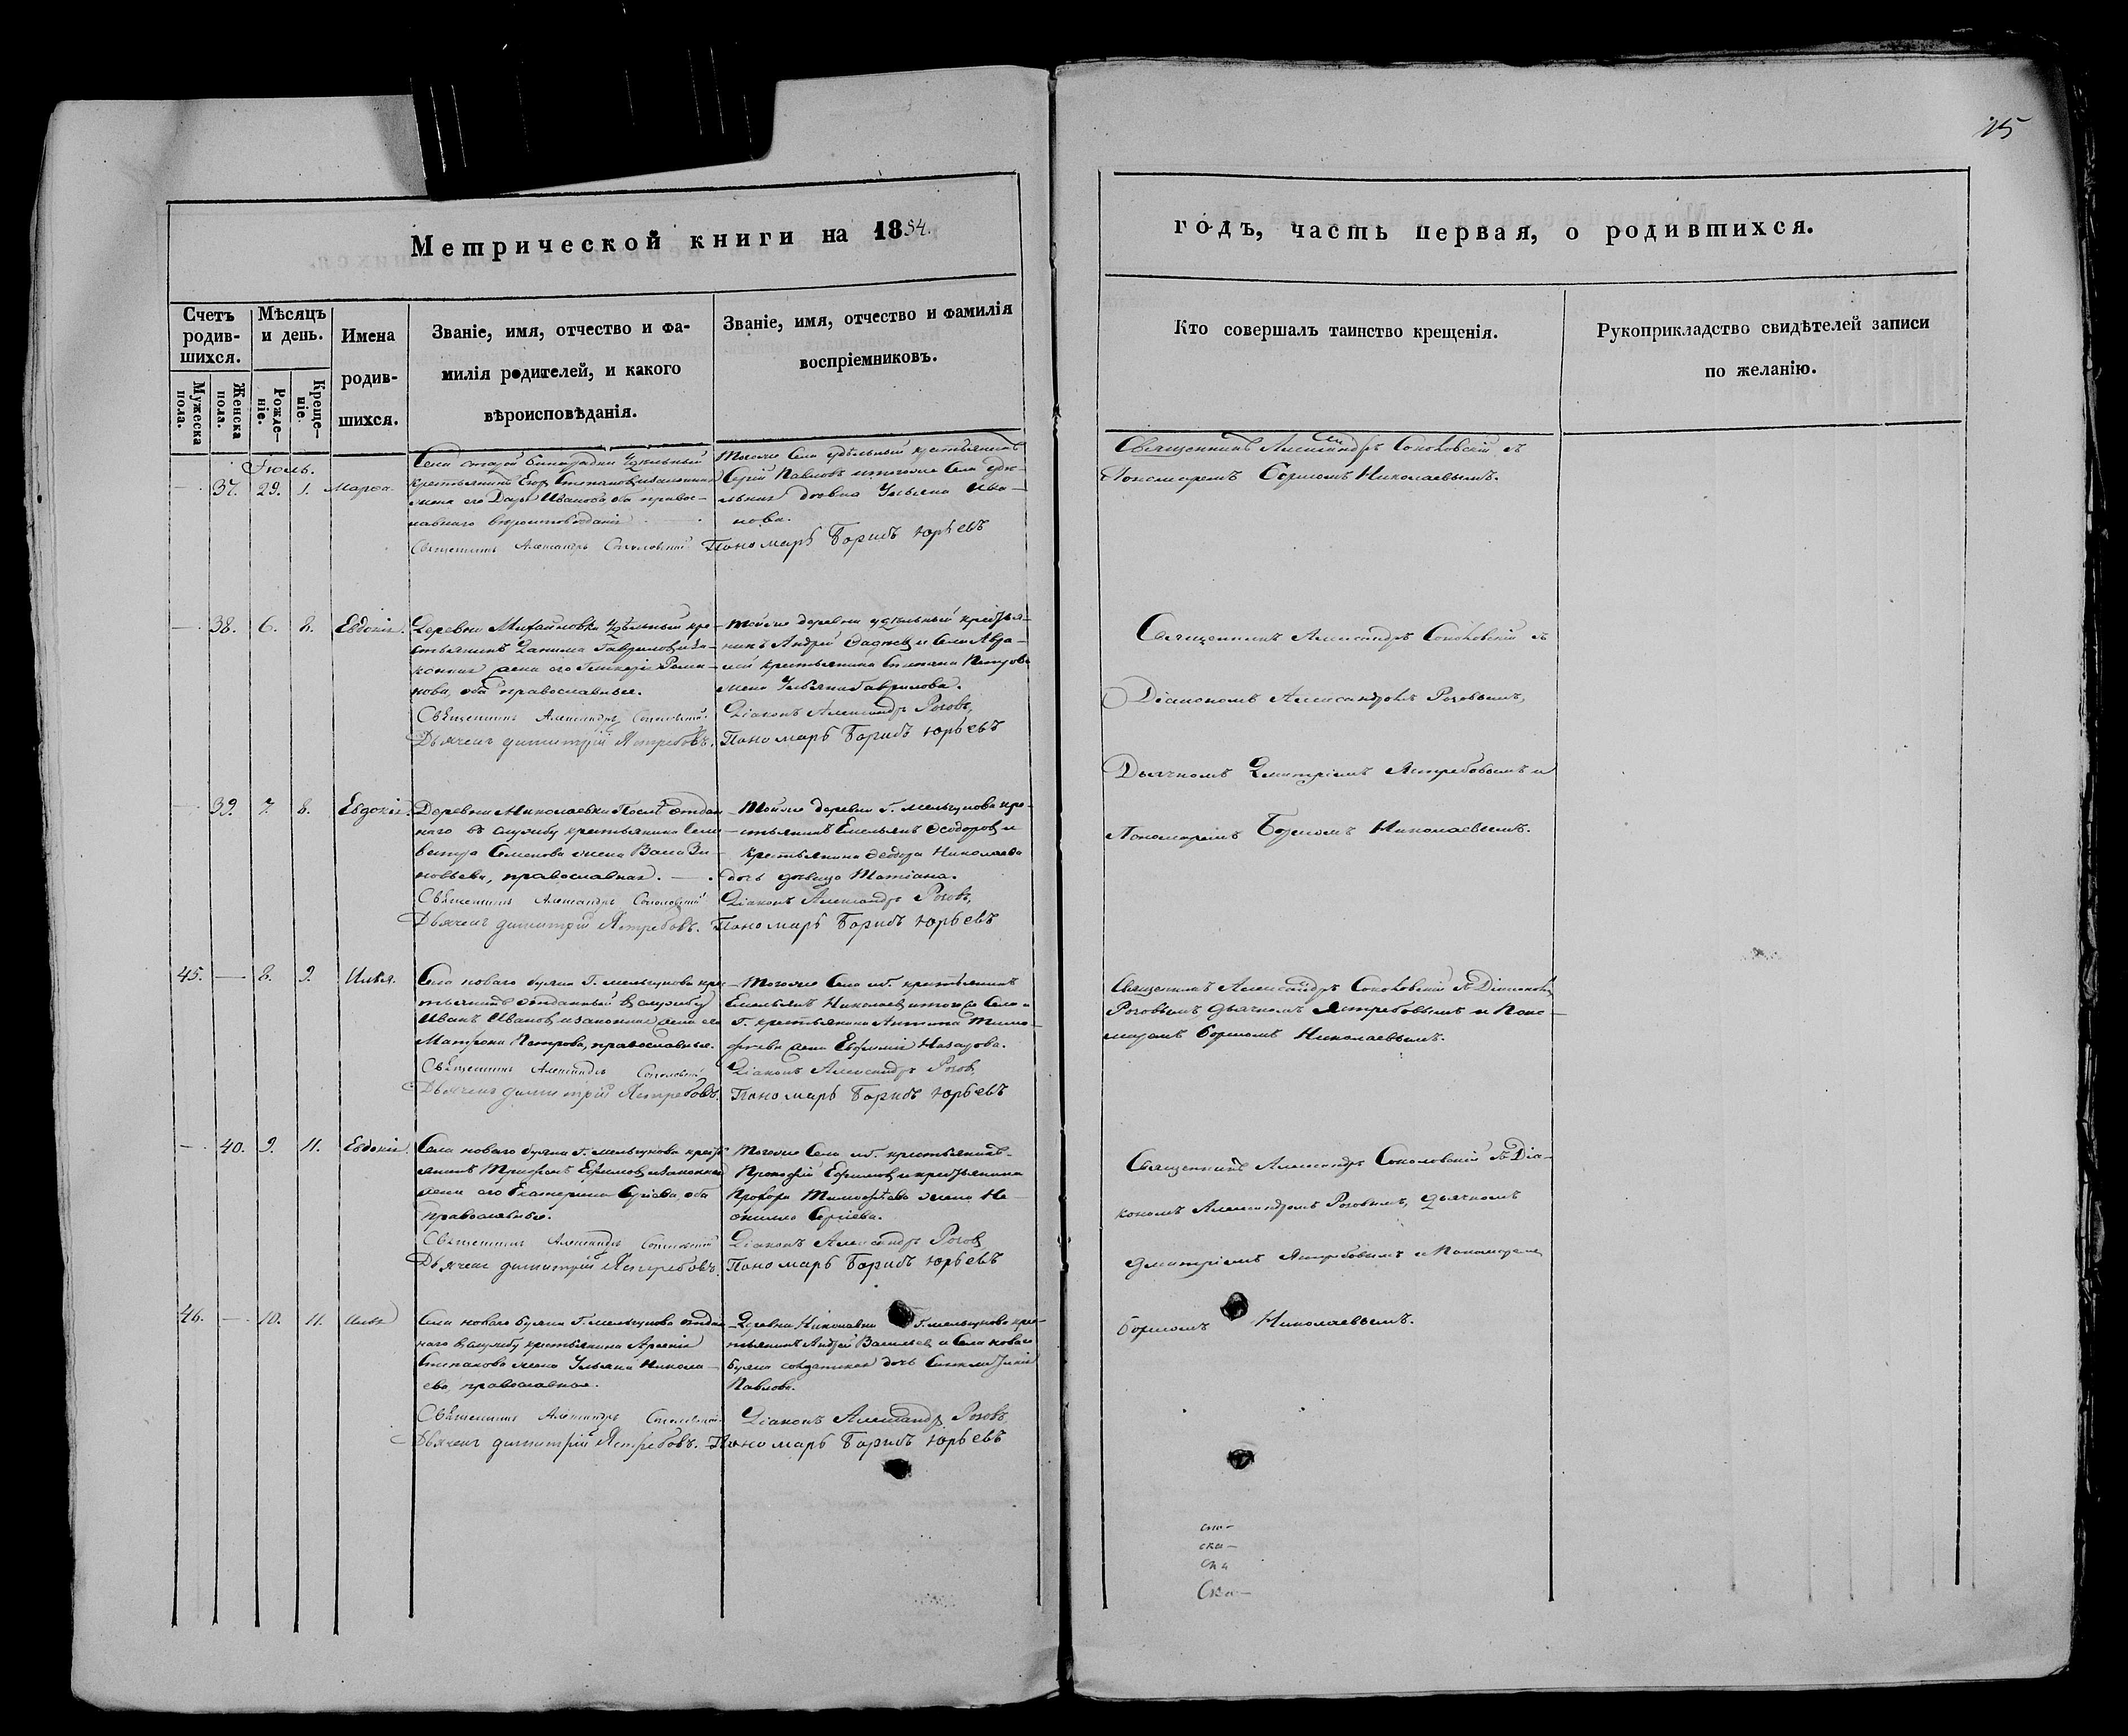 15
Метрической книги на 1854.
годъ, часть первая, о родившихся.
Счетъ родив-шихся.
Мужеска пола.
Женска пола.
Мѣсяцъ и день.
Рожде-ніе.
Креще-ніе.
Имена родив-шихся.
Званіе, имя, отчество и фа-
милія родителей, и какого
вѣроисповѣданія.
Званіе, имя, отчество и фамилія
воспріемниковъ.
Кто совершалъ таинство крещенія.
Рукоприкладство свидѣтелей записи
по желанію.
Іюль.
— 37. 29. 1. Марѳа.
Села старой Удѣльный
крестьянинъ Егоръ Степановъ и законная
жена его Дарья Иванова, оба правос-
лавнаго вѣроисповѣданія.
Священникъ Александръ Соколовскій
Тогоже Села удѣльный крестьянинъ
Сергій Павловъ и тогоже Села удѣ-
льная Ульяна Ива-
нова.
Пономарь Борисъ Юрьевъ
Священникъ Александръ Соколовскій съ
Пономаремъ Борисомъ Николаевымъ.
— 38. 6. 8. Евдокія.
Деревни Михайловки Удѣльный кре-
стьянинъ Данила Гавриловъ и за-
конная жена его Гликерія Рома-
нова, оба православные.
Священникъ Александръ Соколовскій
Дьячекъ Димитрій Ястребовъ.
Тойже деревни удѣльный крестья-
нинъ Андрей и Села
крестьянина Степана Петрова
жена Ульяна Гаврилова.
Діаконъ Александръ Роговъ,
Пономарь Борисъ Юрьевъ
Священникъ Александръ Соколовскій съ
Діакономъ Александромъ Роговымъ,
Дьячкомъ Димитріемъ Ястребовымъ и
Пономаремъ Борисомъ Николаевымъ.
— 39. 7. 8. Евдокія.
Деревни Николаевки Послѣ отдан-
наго въ службу крестьянина
Семенова жена Зи-
новьева, православная.
Священникъ Александръ Соколовскій
Дьячекъ Димитрій Ястребовъ.
Тойже деревни Г. Мельгунова кре-
стьянинъ Емельянъ Ѳеодоровъ и
крестьянина Ѳеодора Николаева
дочь дѣвица Татіана.
Діаконъ Александръ Роговъ,
Пономарь Борисъ Юрьевъ
45. — 8. 9. Илья.
Села новаго Буяна Г. Мельгунова крес-
тьянинъ отданный въ службу
Иванъ Ивановъ и законная жена его
Матрона Петрова, православные.
Священникъ Александръ Соколовскій
Дьячекъ Димитрій Ястребовъ.
Тогоже Села и Г. крестьянинъ
Емельянъ Николаевъ и тогоже Села и
Г. крестьянина Антипа Тимо-
феева жена Евфимія Назарова.
Діаконъ Александръ Роговъ,
Пономарь Борисъ Юрьевъ
Священникъ Александръ Соколовскій съ Діакономъ
Роговымъ, Дьячкомъ Ястребовымъ и Поно-
маремъ Борисомъ Николаевымъ.
— 40. 9. 11. Евдокія.
Села новаго Буяна Г. Мельгунова крестья-
янинъ Трифонъ Ефимовъ и законная
жена его Екатерина Сергіева, оба
православные.
Священникъ Александръ Соколовскій
Дьячекъ Димитрій Ястребовъ.
Тогоже Села и Г. крестьянинъ
Прокофій Ефимовъ и крестьянина
Прохора Тимофѣева жена Не-
онила Сергіева.
Діаконъ Александръ Роговъ
Пономарь Борисъ Юрьевъ
Священникъ Александръ Соколовскій съ Діа-
кономъ Александромъ Роговымъ, Дьячкомъ
Дмитріемъ Ястребовымъ и Пономаремъ
Борисомъ Николаевымъ.
46. — 10. 11. Илья
Села новаго Буяна Г. Мельгунова отдан-
наго въ службу крестьянина Арсенія
Степанова жена Ульяна Никола-
ева, православная.
Священникъ Александръ Соколовскій
Дьячекъ Димитрій Ястребовъ.
Деревни Николаевки Г. Мельгунова крес-
тьянинъ Андрей Васильевъ и Села новаго
Буяна солдатская дочь
Павлова.
Діаконъ Александръ Роговъ,
Пономарь Борисъ Юрьевъ